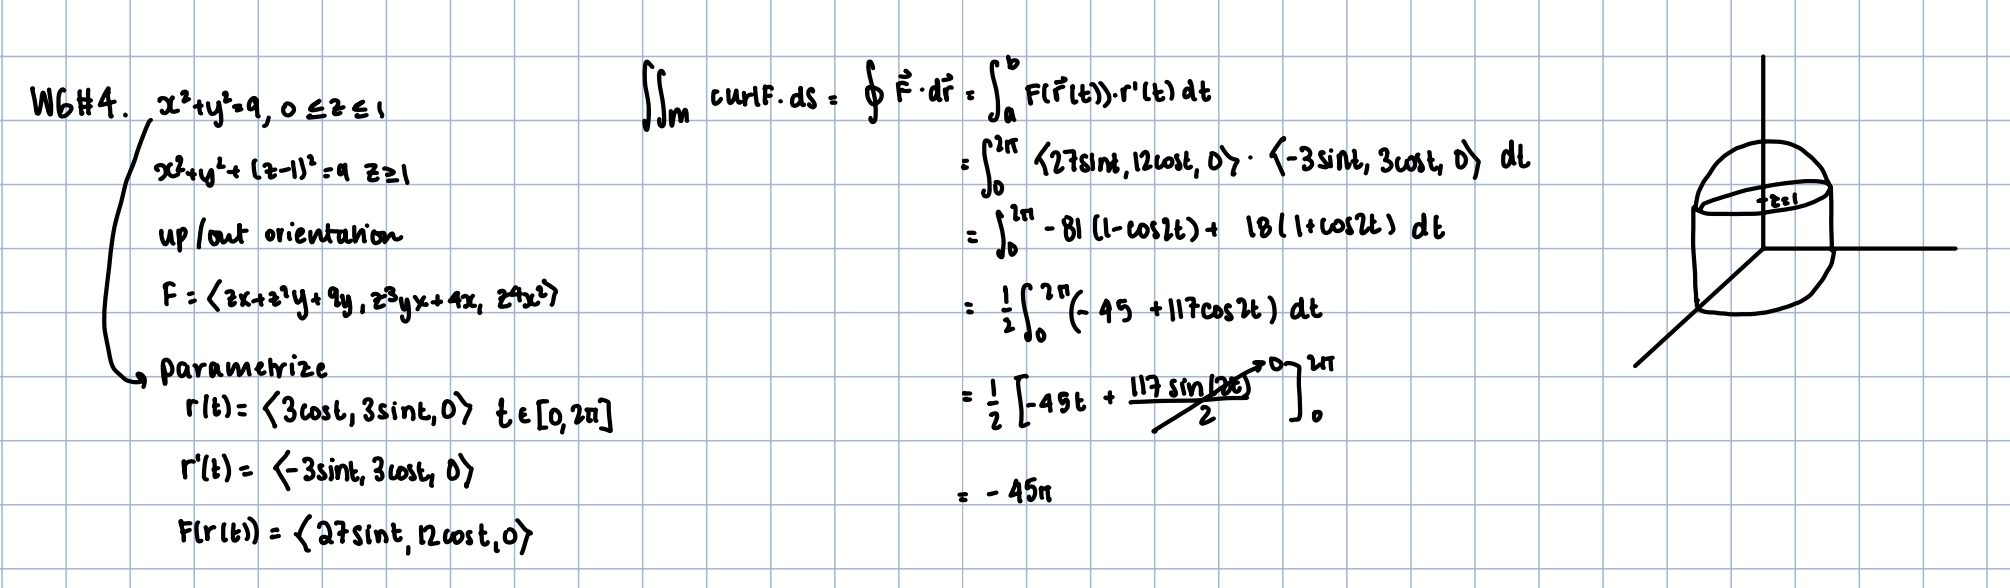 W6#4. x²+y²=9, 0 ≤ z ≤ 1
x²+y²+(z-1)²=9 z≥1
up/out orientation
F = ⟨zx+z²y+9y, z³yx+4x, z⁴x²⟩
parametrize
r(t) = ⟨3cost, 3sint, 0⟩ t ∈ [0, 2π]
r'(t) = ⟨-3sint, 3cost, 0⟩
F(r(t)) = ⟨27sint, 12cost, 0⟩
∬_M curlF·ds = ∮ F⃗·dr⃗ = ∫_a^b F(r⃗(t))·r'(t) dt
= ∫_0^{2π} ⟨27sint, 12cost, 0⟩·⟨-3sint, 3cost, 0⟩ dt
= ∫_0^{2π} -81(1-cos2t) + 18(1+cos2t) dt
= 1/2 ∫_0^{2π} (-45 + 117cos2t) dt
= 1/2 [-45t + 117sin(2t)/2 → 0]_0^{2π}
= -45π
z=1